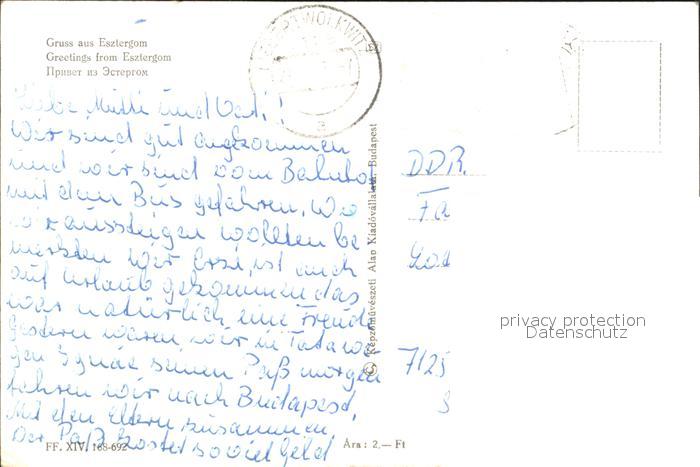 Gruss aus Esztergom
Greetings from Esztergom
Привет из Эстергом
Liebe Mutti und Vati!
Wir sind gut angekommen
und wir sind vom Bahnhof
mit dem Bus gefahren. Wo
wir aussteigen wollten be
merkten wir Erzi, ist auch
auf Urlaub gekommen das
war natürlich eine Freude
Gestern waren wir in Tata we
gen Ignác seinen Paß morgen
fahren wir nach Budapest,
Mit den Eltern zusammen
Der Paß kostet soviel Geld
FF. XIV. 168-692
Ára: 2,— Ft
© Képzőművészeti Alap Kiadóvállalata, Budapest
WOLKWITZ
a
DDR.
Fa
7125
privacy protection
Datenschutz